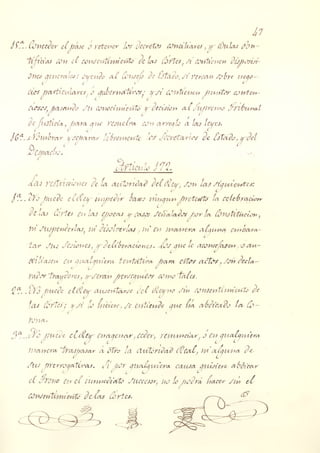 47
15ª.. Conceder el pase ó retener los decretos conciliares, y Bulas Pon-
tificias con el consentimiento de las Córtes, si contienen disposici-
ones generales: oyendo al Consejo de Estado, si versan sobre nego-
cios particulares, ó gubernativos; y si contienen puntos conten-
ciosos, pasando su conocimiento y decision al Supremo Tribunal
de Justicia, para que resuelva con arreglo á las leyes.
16ª.. Nombrar y separar libremente los Secretarios de Estado, y del
Despacho.
Articulo 172.
Las restricciones de la autoridad del Rey, son las siguientes:
1ª.. No puede el Rey impedir baxo ningun pretexto la celebracion
de las Córtes en las épocas y casos señalados por la Constitucion,
ni suspenderlas, ni disolverlas, ni en manera alguna embara-
zar sus sesiones, y deliberaciones. Los que le aconsejasen, ó au-
xiliasen en qualquiera tentativa para estos actos, son decla-
rados traydores, y serán perseguidos como tales.
2ª.. No puede el Rey ausentarse del Reyno sin consentimiento de
las Córtes; y si lo hiciere, se entiende que ha abdicado la Co-
rona.
3ª.. No puede el Rey enagenar, ceder, renunciar, ó en qualquiera
manera traspasar á otro la autoridad Real, ni alguna de
sus prerrogativas. Si por qualquiera causa quisiere abdicar
el Trono en el inmediato sucesor, no lo podrá hacer sin el
consentimiento de las Córtes.